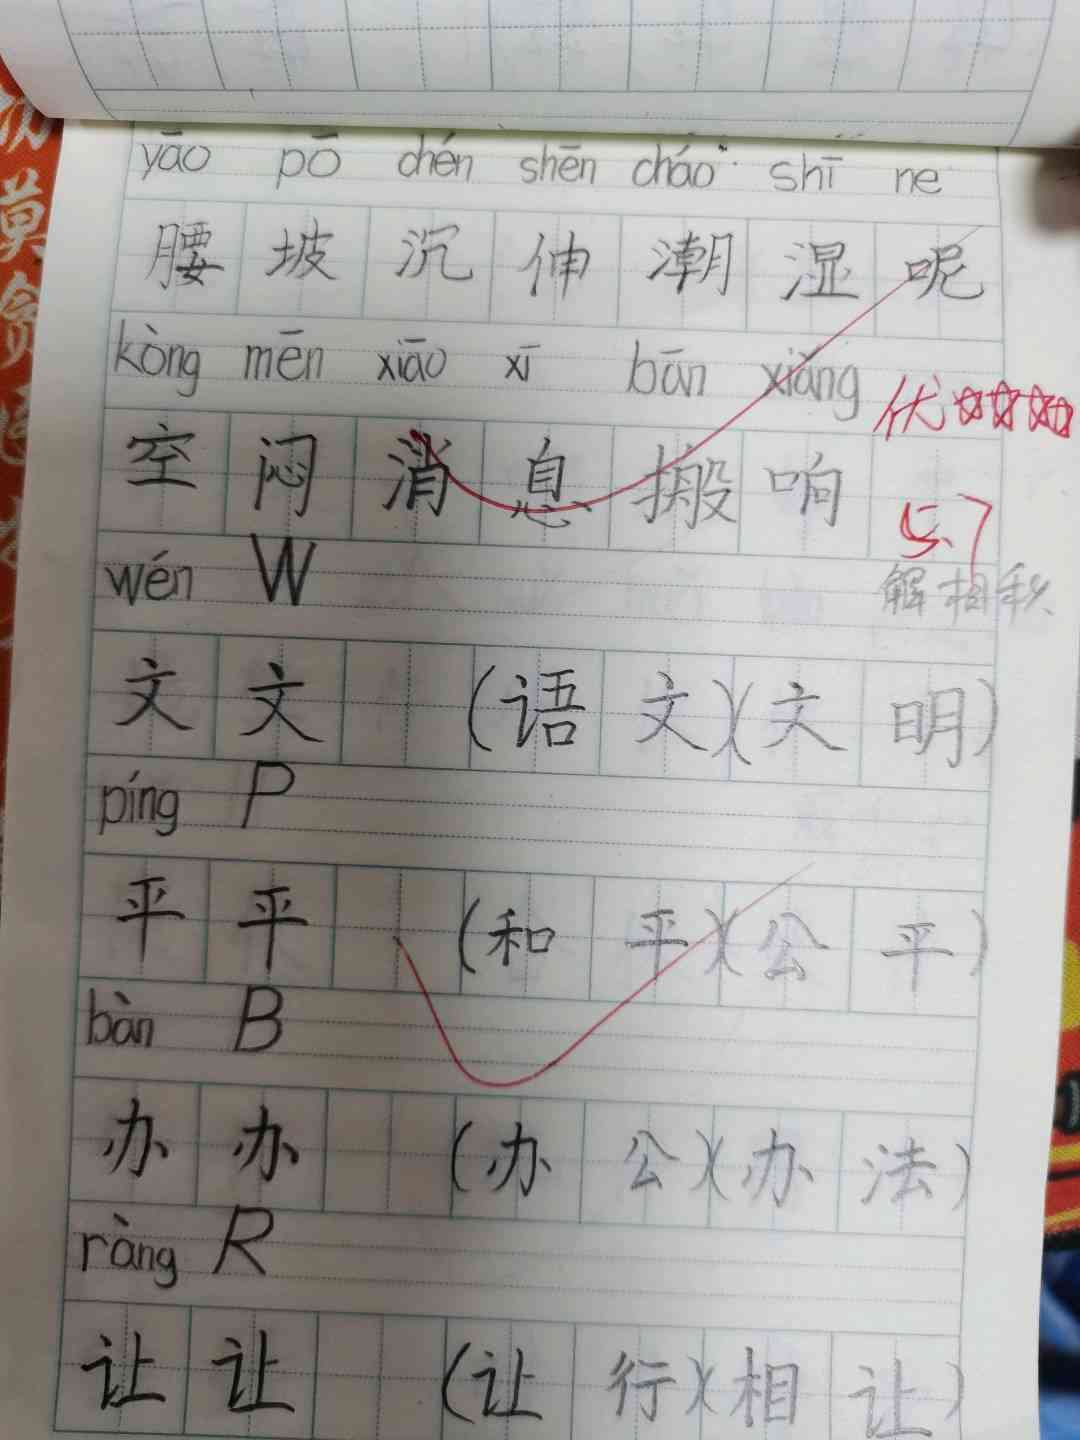 yāo pō chén shēn cháo shī ne
腰 坡 沉 伸 潮 湿 呢
kòng mēn xiāo xī bān xiǎng
优☆☆☆☆
空 闷 消 息 搬 响
5.7
wén W
解 相 秋
文 文 (语 文)(文 明)
píng P
平 平 (和 平)(公 平)
bàn B
办 办 (办 公)(办 法)
ràng R
让 让 (让 行)(相 让)